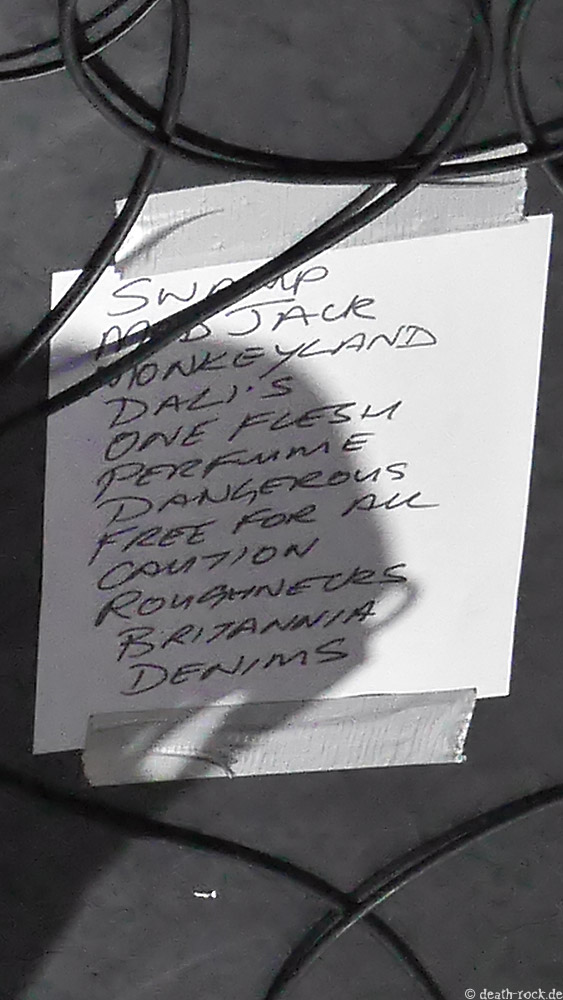 SWAMP
MAD JACK
MONKEYLAND
DALI'S
ONE FLESH
PERFUME
DANGEROUS
FREE FOR ALL
CAUTION
ROUGHNECKS
BRITANNIA
DENIMS
© death-rock.de